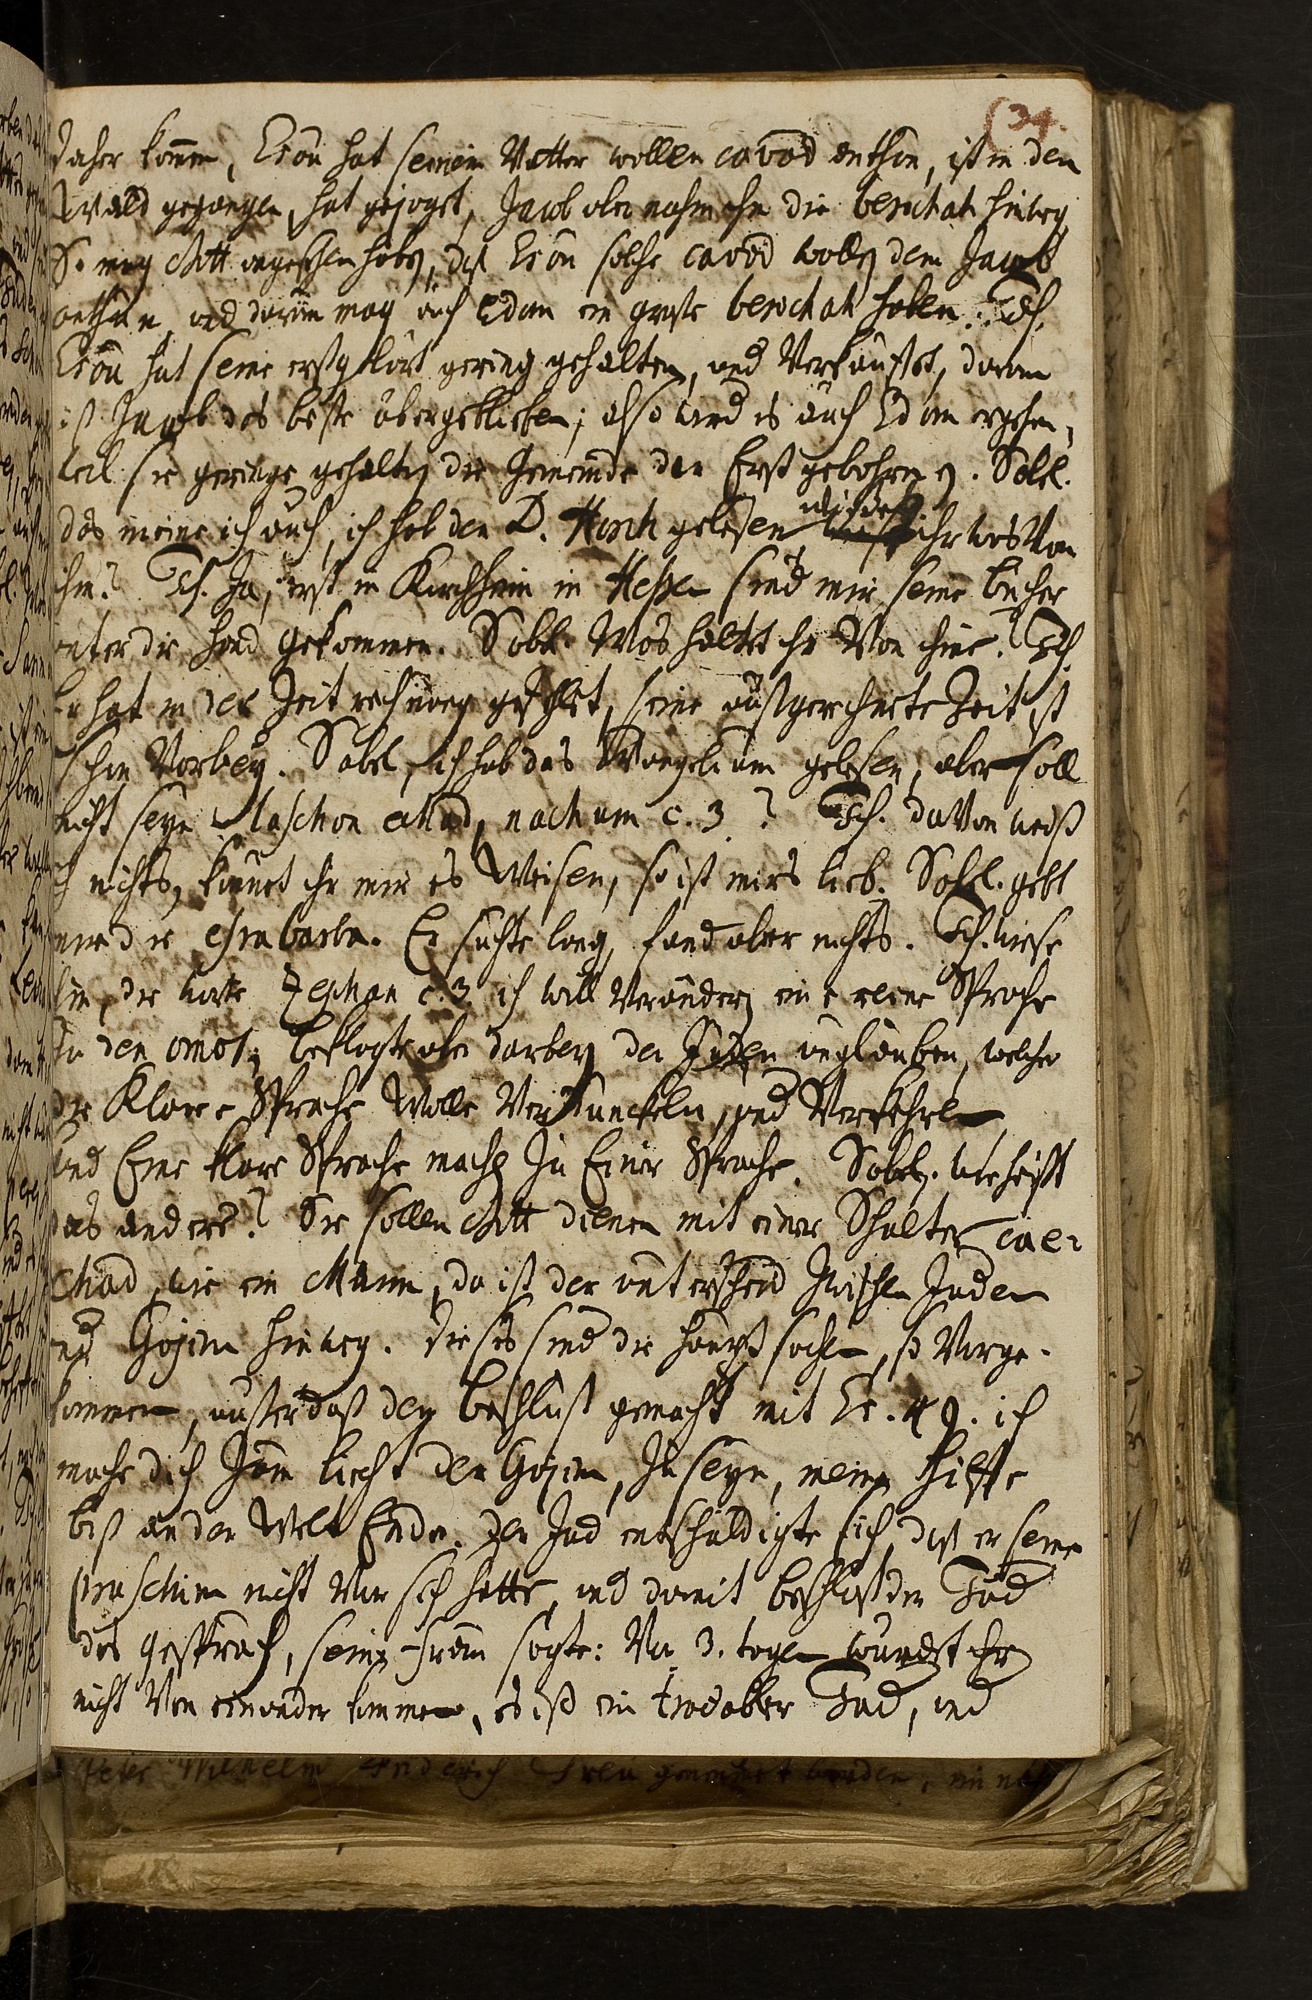 (34.
daher komm, Esau hat seinem Vatter wollen cavod anthun, ist in den
Wald gegangen, hat gejaget, Jacob aber nahm ihm die berachah hinweg
So mag Gott angesehen haben, daß Esau solche cavod wollen dem Jacob
anthun, und darum mag auch Edom ein große berachah haben. Ich.
Esau hat seine erstgeburt gering gehalten, und Verkauffet, darum
ist Jacob das beste übergeblieben; also wird es auch Edom ergehen,
weil sie geringe gehalten die Gemeinde der Erstgebohrnen. Sobel.
das meine ich auch, ich hab den D. Horch gelesen wisset ihr was Von
ihm? Ich. Ja, erst in Kirchhein in Hessen sind mir seine bücher
unter die hand gekommen. Sobel. Was haltet ihr Von ihme? Ich
Er hat in der Zeit rechnung gefehlet, seine außgerechnete Zeit ist
schon Vorbey. Sobel, ich hab das Evangelium gelesen, aber soll
nicht seyn laschon echad, nachum c. 3.? Ich. davon weiß
ich nichts, könnet ihr mir es Weisen, so ist mirs lieb. Sobel. gebt
mir die esrabarba. Er suchte lang, fand aber nichts. Ich wiese
ihm die worte Zephan c. 3. ich will Verändern eine reine Sprache
zu den omos, beklagte aber darbey der Juden unglauben, welche
die Klare Sprache Wolle Verdunckeln, und Verkehren
und Eine klare Sprache mache zu Einer Sprache. Sobel. wie heist
das andere? Sie sollen Gott dienen mit einer Schulter cae-
chad, wie ein Mann, da ist der unterscheid Zwischen Juden
und Gojim hinweg. dieses sind die haupt sachen, so Vorge-
kommen, außer daß den beschluß gemacht mit Es. 49. ich
mache dich zum liecht der Gojim, zu seyn, meine Hilffe
biß an der Welt Ende. Der Jud entschuldigte sich, daß er seine
praschim nicht Vor sich hatte, und damit beschloß der Jud
das gespräch, seine frau sagte: Vor 3. tagen würdet Ihr
nicht Von einander kommen, es ist ein Jud, und